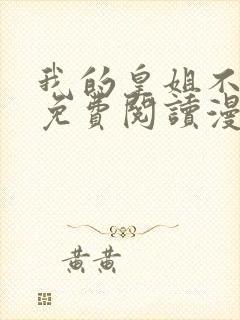 我的皇姐不
免費閱讀漫
黃黃